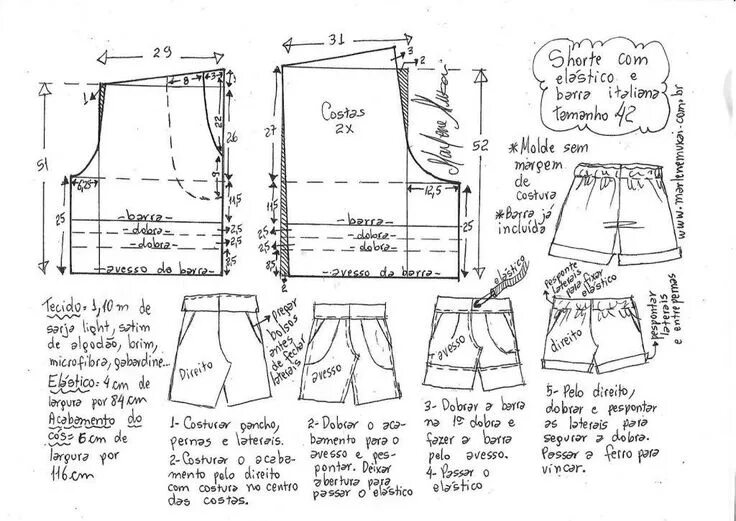 29
8
3
1
1
22
26
51
9
6,25
11,5
25
-barra-
-dobra-
-dobra-
2,5
2,5
2,5
avesso da barra-
31
3
2
Costas
2X
27
52
12,5
11,5
25
25
2,5
2,5
8,5
-barra-
-dobra-
-dobra-
-avesso da barra-
2
Marlene Mukai
Shorte com
elástico e
barra italiana
tamanho 42
*Molde sem
margem
de
costura
*Barra já
incluída
www.marlenemukai.com.br
Tecido= 1,10 m de
sarja light, satim
de algodão, brim,
microfibra, gabardine...
Elástico= 4 cm de
largura por 84 cm
Acabamento do
cós= 6 cm de
largura por
116 cm
Direito
pregar
bolsos
antes
de fechar
laterais
1- Costurar gancho,
pernas e laterais.
2- Costurar o acaba-
mento pelo direito
com costura no centro
das costas.
avesso
2- Dobrar o aca-
bamento para o
avesso e pes-
pontar. Deixar
abertura para
passar o elástico
elástico
avesso
3- Dobrar a barra
na 1ª dobra e
fazer a barra
pelo avesso.
4- Passar o
elástico
pesponte
laterais
para fixar
elástico
direito
pespontar
laterais
e entrepernas
5- Pelo direito,
dobrar e pespontar
as laterais para
segurar a dobra.
Passar a ferro para
vincar.